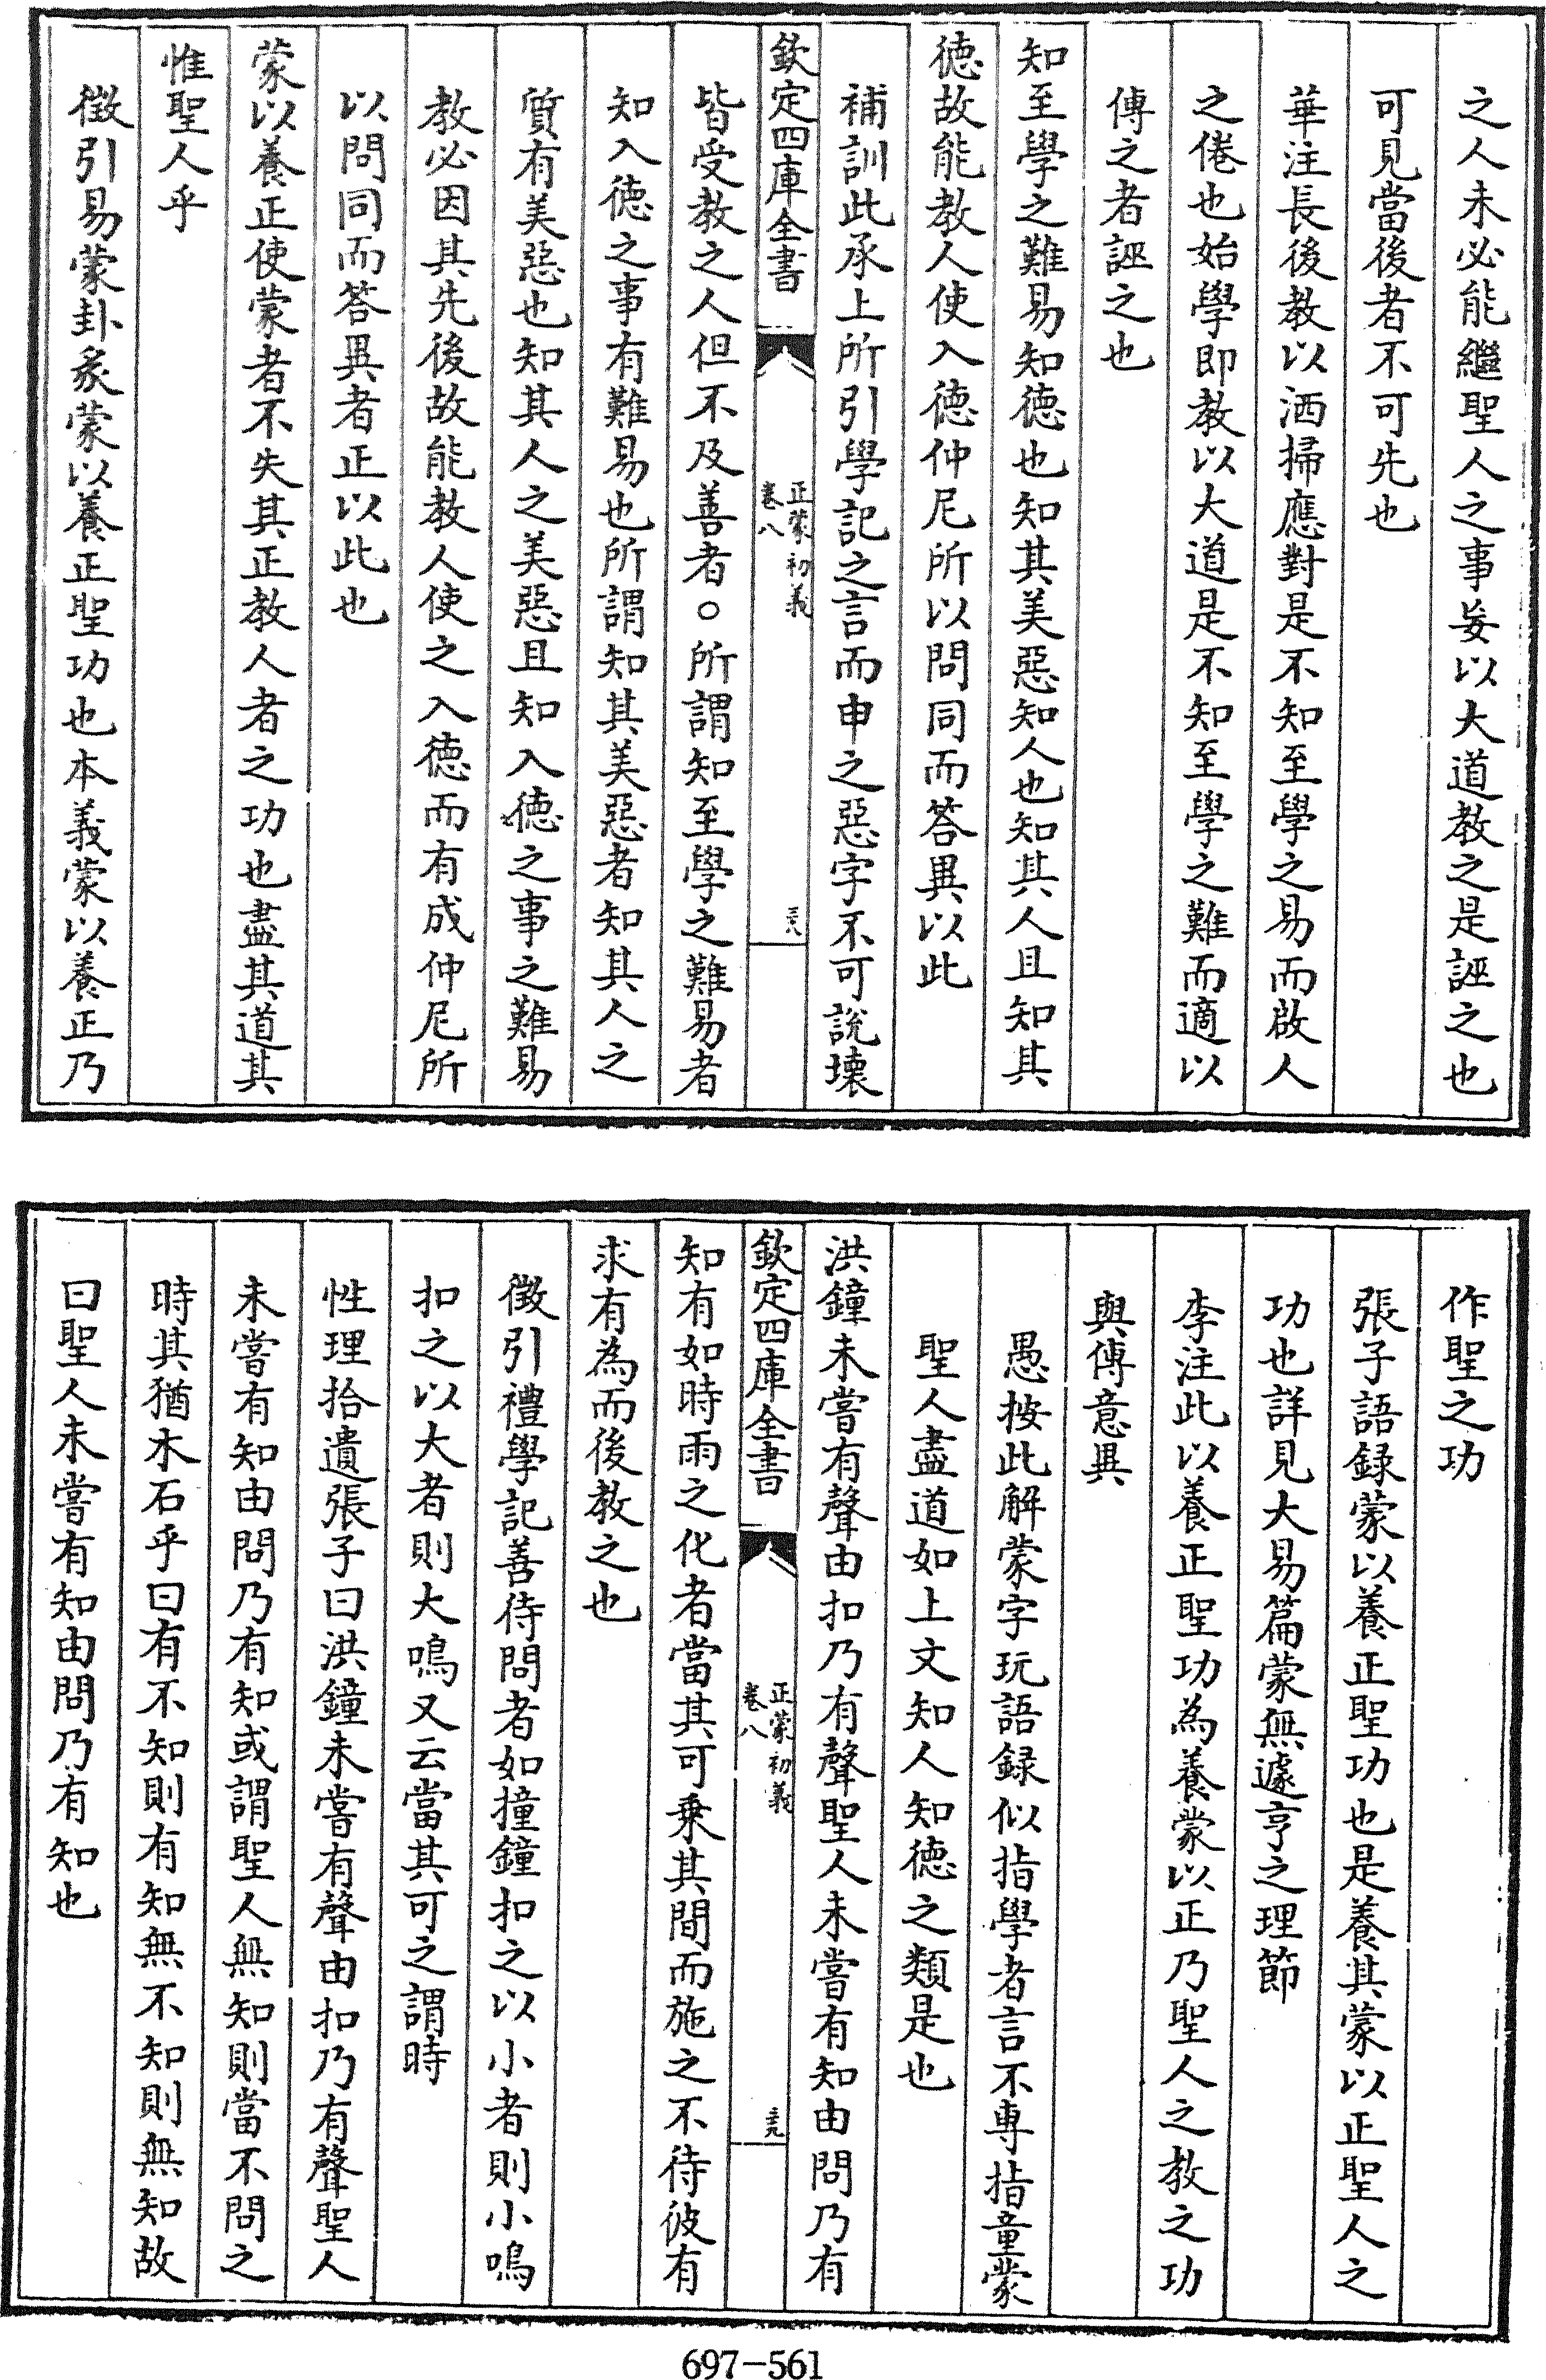 之人未必能繼聖人之事妄以大道教之是誣之也
可見當後者不可先也
華注長後教以洒掃應對是不知至學之易而啟人
之倦也始學即教以大道是不知至學之難而適以
傳之者誣之也
知至學之難易知德也知其美惡知人也知其人且知其
德故能教人使入德仲尼所以問同而答異以此
補訓此承上所引學記之言而申之惡字不可說壞
欽定四庫全書
正蒙初義
卷八
三八
皆受教之人但不及善者○所謂知至學之難易者
知入德之事有難易也所謂知其美惡者知其人之
質有美惡也知其人之美惡且知入德之事之難易
教必因其先後故能教人使之入德而有成仲尼所
以問同而答異者正以此也
蒙以養正使蒙者不失其正教人者之功也盡其道其
惟聖人乎
徵引易蒙卦彖蒙以養正聖功也本義蒙以養正乃
作聖之功
張子語録蒙以養正聖功也是養其蒙以正聖人之
功也詳見大易篇蒙無遽亨之理節
李注此以養正聖功為養蒙以正乃聖人之教之功
與傳意異
愚按此解蒙字玩語録似指學者言不専指童蒙
聖人盡道如上文知人知德之類是也
洪鐘未嘗有聲由扣乃有聲聖人未嘗有知由問乃有
欽定四庫全書
正蒙初義
卷八
三九
知有如時雨之化者當其可乗其間而施之不待彼有
求有為而後教之也
徵引禮學記善待問者如撞鐘扣之以小者則小鳴
扣之以大者則大鳴又云當其可之謂時
性理拾遺張子曰洪鐘未嘗有聲由扣乃有聲聖人
未嘗有知由問乃有知或謂聖人無知則當不問之
時其猶木石乎曰有不知則有知無不知則無知故
曰聖人未嘗有知由問乃有知也
697-561